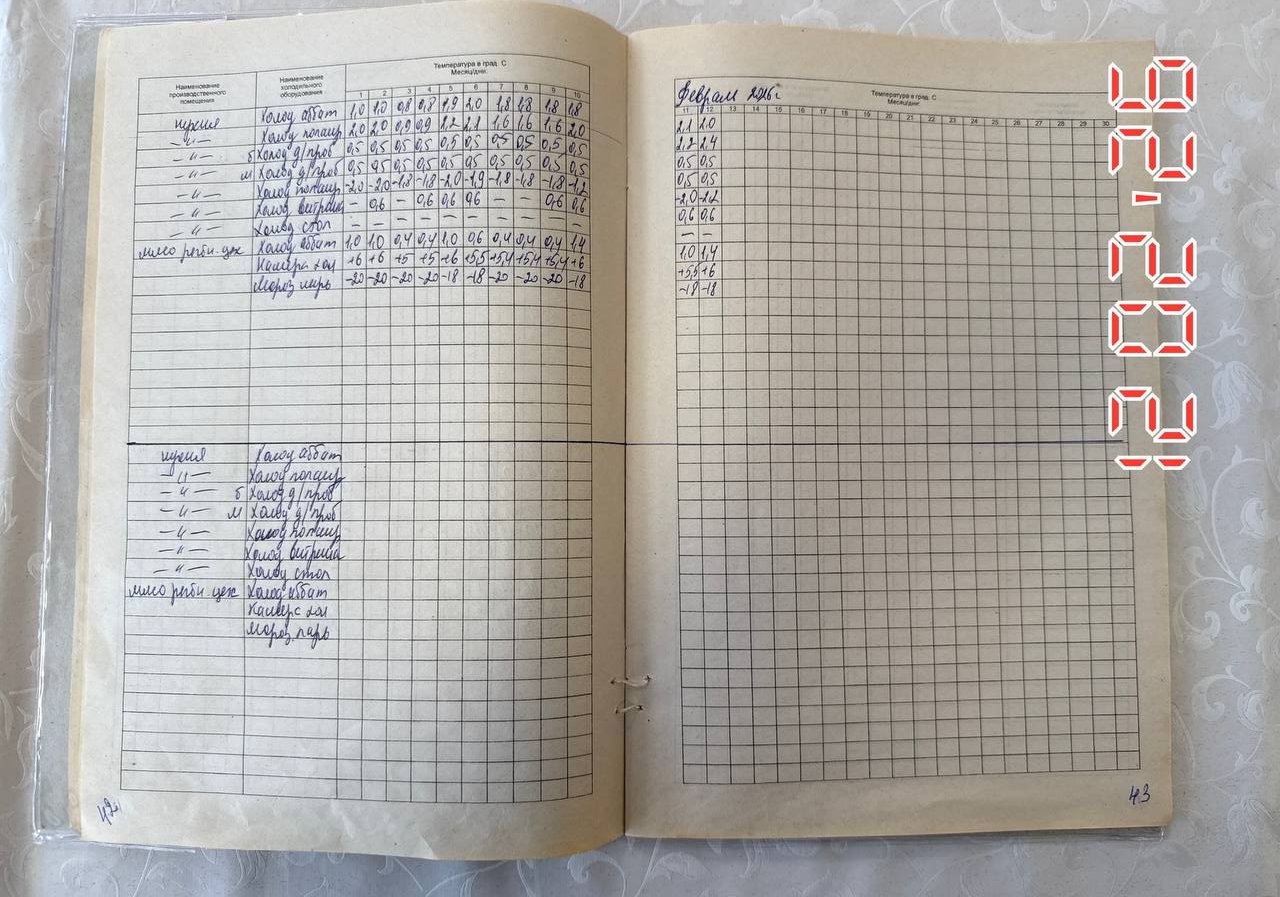 Наименование производственного помещения
Наименование холодильного оборудования
Температура в град. С
Месяц/дни:
1 2 3 4 5 6 7 8 9 10
кухня Холод аббат 1,0 1,0 0,8 0,8 1,9 2,0 1,8 1,8 1,8 1,8
—"— Холод попаир 2,0 2,0 0,9 0,9 2,2 2,1 1,6 1,6 1,6 2,0
—"— б Холод д/проб 0,5 0,5 0,5 0,5 0,5 0,5 0,5 0,5 0,5 0,5
—"— м Холод д/проб 0,5 0,5 0,5 0,5 0,5 0,5 0,5 0,5 0,5 0,5
—"— Холод попаир -2,0 -2,0 -1,8 -1,8 -2,0 -1,9 -1,8 -1,8 -1,8 -1,2
—"— Холод витрина — 0,6 — 0,6 0,6 0,6 — — 0,6 0,6
—"— Холод стол — — — — — — — — —
мясо рыбн. цех Холод аббат 1,0 1,0 0,4 0,4 1,0 0,6 0,4 0,4 0,4 1,4
Камера хол +6 +6 +5 +5 +6 +5,5 +5,4 +5,4 +5,4 +6
Мороз ларь -20 -20 -20 -20 -18 -18 -20 -20 -20 -18
кухня Холод аббат
—"— Холод попаир
—"— б Холод д/проб
—"— м Холод д/проб
—"— Холод попаир
—"— Холод витрина
—"— Холод стол
мясо рыбн. цех Холод аббат
Камера хол
Мороз. ларь
42
Феврам 2026 г
Температура в град. С
Месяц/дни:
11 12 13 14 15 16 17 18 19 20 21 22 23 24 25 26 27 28 29 30
2,1 2,0
2,2 2,4
0,5 0,5
0,5 0,5
-2,0 -2,2
0,6 0,6
— —
1,0 1,4
+5,5 +6
-18 -18
43
12 02 '26